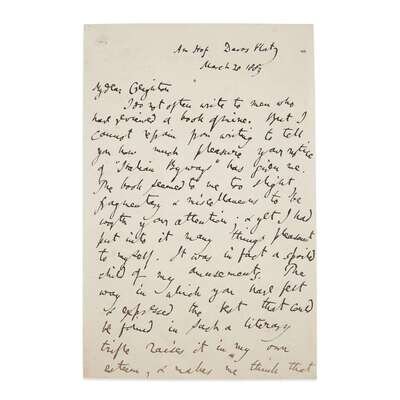 Am Hof Davos Platz
March 20 1883
My dear Creighton
I do not often write to men who
have reviewed a book of mine. But I
cannot refrain from writing to tell
you how much pleasure your notice
of "Italian Byways" has given me.
The book seemed to me too slight,
fragmentary & miscellaneous to be
worth your attention; & yet I had
put into it many things pleasant
to myself. It was in fact a spoiled
child of my amusements. The
way in which you have felt
& expressed the best that could
be found in such a literary
trifle raises it in my own
esteem, & makes me think that